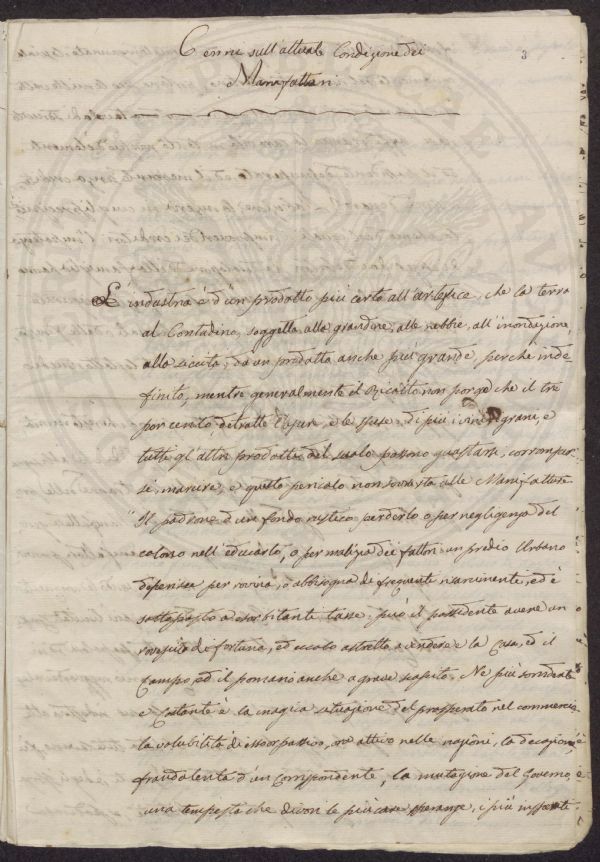 Cenni sull'attuale Condizione dei
3
Manifattori
L'industria è d'un prodotto più certo all'artefice, che la terra
al Contadino, soggetta alla grandine, alle nebbie, all'inondazione
alla siccità; dà un prodotto anche più grande, perchè inde-
finito, mentre generalmente il Ricolto non porge che il tre
per cento detratte l'usure, e le spese; di più i vini, i grani, e
tutti gl'altri prodotti del suolo possono guastarsi, corromper-
si, marcire, e questo pericolo non sovrasta alle Manifatture.
Il padrone d'un fondo rustico perderlo o per negligenza del
colono nell'educarlo, o per malizia dei fattori: un predio Urbano
deperisce per rovina, o abbisogna di frequenti risarcimenti, ed è
sottoposto a esorbitante tasse; può il possedente avere un
rovescio di fortuna, ed eccolo astretto a vendere e la Casa, ed il
Campo, ed il pomario anche a grave scapito. Nè più
e Costante è la magica situazione del prosperato nel commercio
la volubilità di essor passivo, ora attivo nelle nazioni, la decozione
fraudolenta d'un Corrispondente, la mutazione del Governo, è
una tempesta che le più care speranze, i più